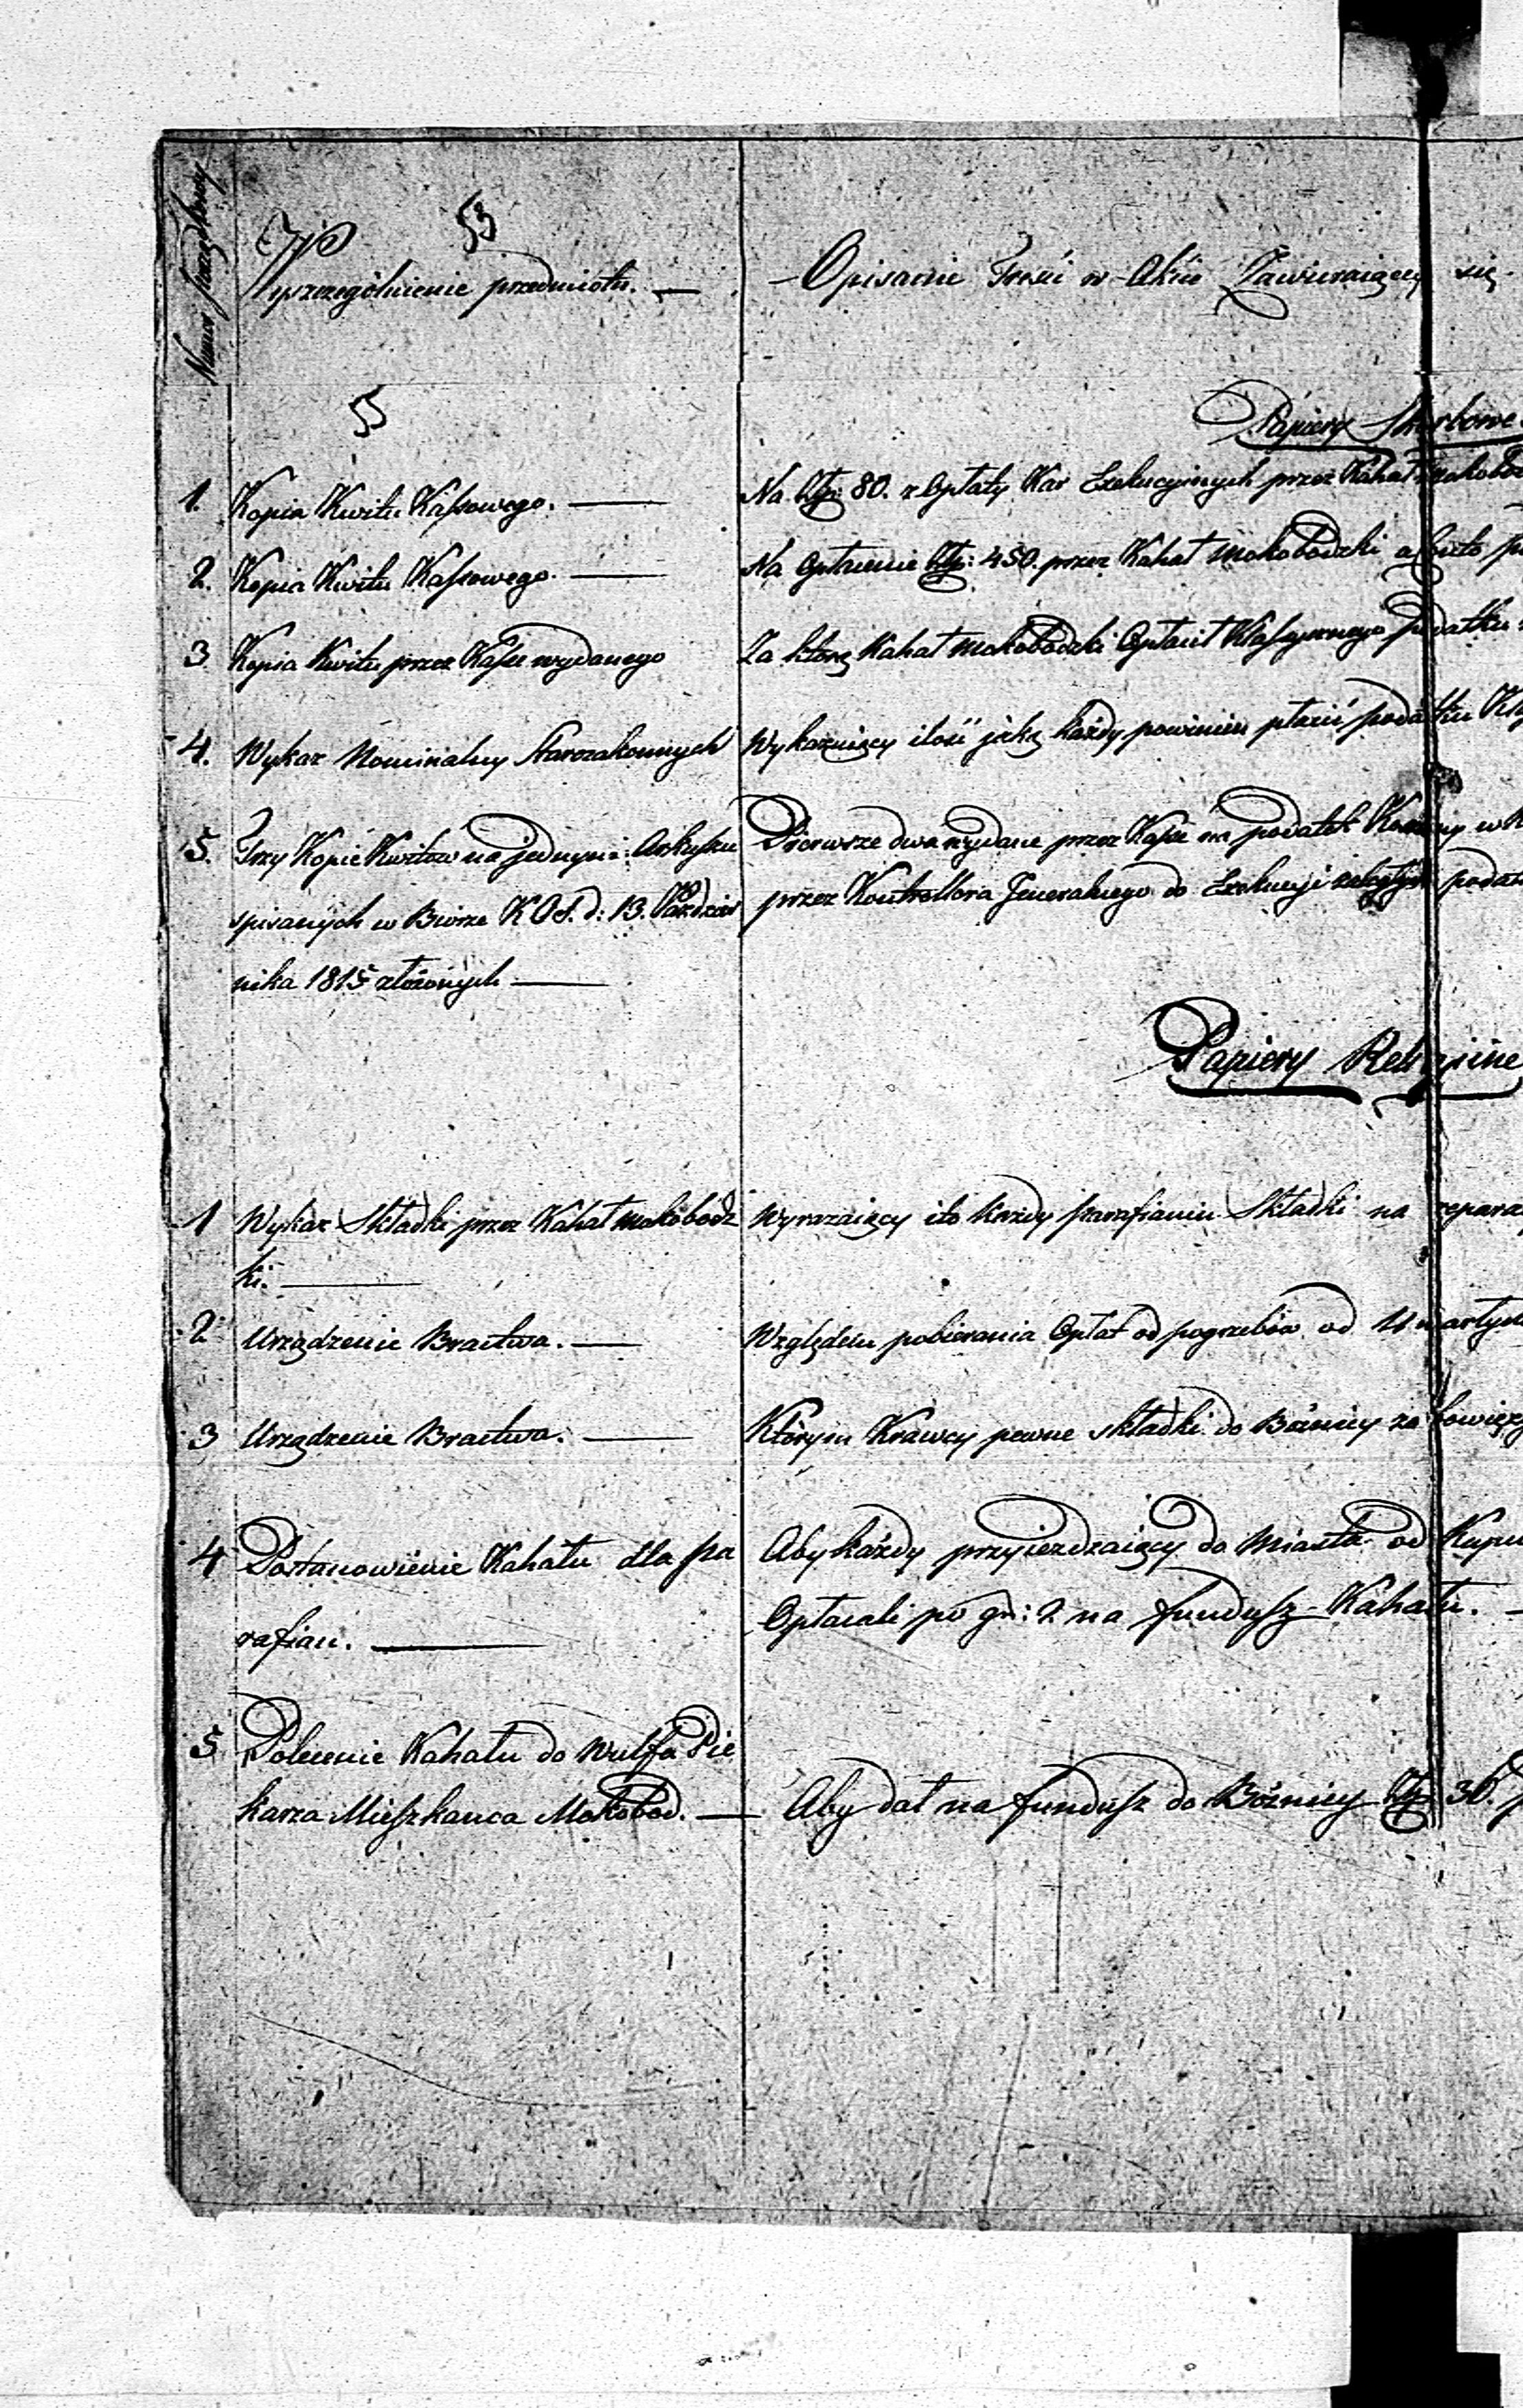 Numer porządkowy
53
Wyszczególnienie przedmiotu. —
Opisanie Treści w Akcie Zawieraiącey się
55
Papiery Skarbowe
1. Kopia Kwitu Kassowego. — Na Złp: 80. z Opłaty Kar Exekucyinych przez Kahał
2. Kopia Kwitu Kassowego. — Na Opłacenie Złp: 450. przez Kahał Makobodzki a Conto
3 Kopia Kwitu przez Kassę wydanego Za którą Kahał Makobodzki Opłacił Klassycznego podatku
4. Wykaz Nominalny Starozakonnych Wykazuiący ilość jaką każdy powinien płacić podatku
5. Trzy Kopie Kwitów na jednym Arkuszu Pierwsze dwa wydane przez Kassę na podatek w
spisanych w Biórze K O S. d: 13. Paździer przez Kontrollora Jeneralnego do Exekucyi
nika 1815 złożonych —
Papiery Religiine
1 Wykaz Składki przez Kahał Makobódz Wyrazaiący ilo każdy Parafianin Składki na
ki. —
2 Urządzenie Bractwa. — Względem pobierania Opłat od pogrzebów od Umarłych
3 Urządzenie Bractwa. — Którym Krawcy pewne składki do Bóżnicy
4 Postanowienie Kahału dla pa Aby każdy przyieżdzaiący do Miasta od
rafian. — Opłacali po gr: 2 na fundusz Kahału. —
5 Polecenie Kahału do Wulfa Pie
karza Mieszkańca Makobod. — Aby dał na fundusz do Bóżnicy Złp 36.